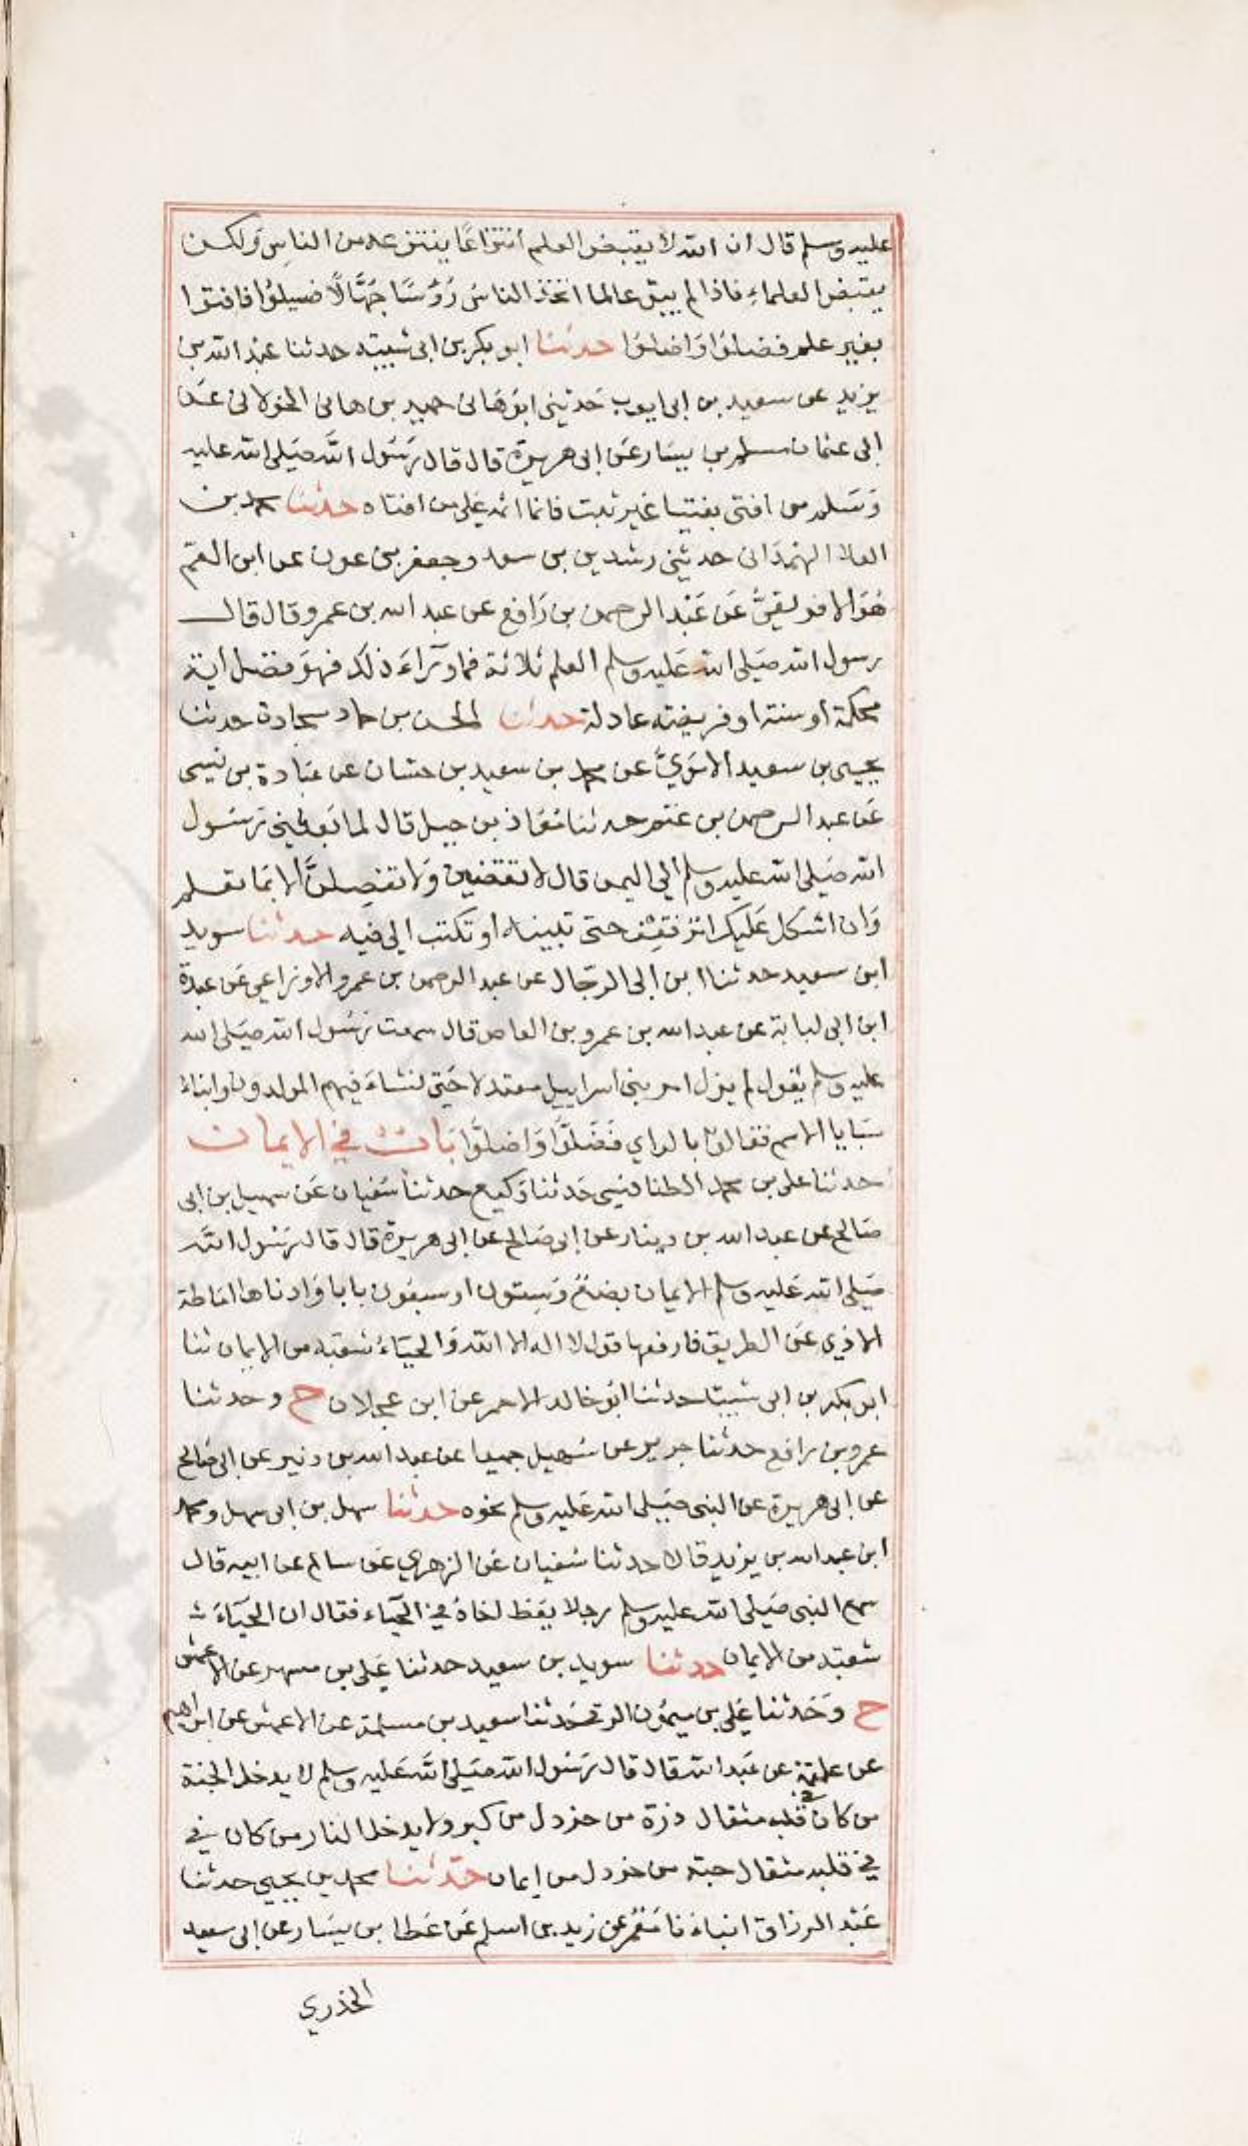 عليه وسلم قال ان الله لا يقبض العلم انتزاعًا ينتزعه من الناس ولكن
يقبض العلماءِ فاذا لم يبق عالما اتخذ الناسُ رُؤُسًا جُهَّالًا فسيلوُا فافتوا
بغير علم فضلوُا وَاضلوُا حدثنا ابو بكر بن ابى شيبته حدثنا عبد الله بن
يزيد عن سعيد بن ابى ايوب حَدثني ابوُهَانى حميد بن هانى الخولانى عَن
ابى عثمان مسلم بن يسَار عَن ابى هريرة قال قال رَسُول الله صَلى الله عليه
وَسَلم من افتى بفتيا غير ثبت فانما اثمه عَلى من افتاه حدثنا محمد بن
العلا الهَمدَانى حدثني رشدين بن سعد وجعفر بن عون عن ابن انعم
هُوَ الافريقيُّ عَن عَبْد الرحمن بن رَافع عن عبد الله بن عمرو قال قال
رسول الله صَلى الله عَليه وسلم العلم ثلاثة فما ورَاءَ ذلك فهوَ فضل اية
محكمة او سنته او فريضته عادلة حدثنا الحسن بن حماد سجادة حدثنا
يحيى بن سعيد الامَويُّ عن محمد بن سعيد بن حسَّان عن عبَادة بن نسى
عَن عبد الرحمن بن غنم حدثنا مُعَاذ بن جبل قال لما بَعثني رَسُول
الله صَلى الله عليه وسلم الى اليمن قال لا تقضين وَلا تفصِلنَّ الا بمَا تعلم
وَان اشكل عَليك امر فقِف حتى تبينه او تكتب الى فيه حدثنا سويد
ابن سعيد حدثنا ابن ابى الرجَال عن عبد الرحمن بن عمرو الاوزاعي عَن عبدة
ابن ابى لبابة عن عبد الله بن عمرو بن العاص قال سمعت رَسُول الله صَلى الله
عليه وسلم يقول لم يزل امر بنى اسراييل معتدلا حَتى نشاءَ فيهم المولدون وابناءُ
سَبايا الامم فقالوُا بالراي فَضَلوَّا وَاضلوَّا بَابٌ في الايمان
حدثنا على بن محمد الطنافسي حَدثنا وَكيع حدثنا سُفيان عَن سهيل بن ابى
صَالح عن عبد الله بن دينار عن ابى صَالح عن ابى هريرة قال قال رَسُول الله
صَلى الله عَليه وسلم الايمان بضعٌ وَسِتون او سبعُون بابا وَادناها اماطة
الاذي عَن الطريق فارفعها قول لا اله الا الله وَالحيَاءُ شعبه من الايمان ثنا
ابو بكر بن ابى شيبة حدثنا ابوُ خالد الاحمر عن ابن عجلان ح وحدثنا
عمرو بن رافع حدثنا جرير عن سُهيل جميعا عن عبد الله بن دنير عن ابى صَالح
عن ابى هريرة عن النبى صَلى الله عَليه وسلم نحوه حدثنا سهل بن ابى سهل ومحمد
ابن عبد الله بن يزيد قالا حدثنا سُفيان عَن الزهري عَن سالم عن ابيه قال
سمع النبى صَلى الله عليه وسلم رجلا يعَظ اخاهُ في الحَياء فقال ان الحَيَاءَ
شعبته من الايمان حدثنا سويد بن سعيد حدثنا عَلى بن مسهر عن الاعمش
ح وَحَدثنا عَلى بن ميمُون الرقى حَدثنا سعيد بن مسلمة عن الاعمش عن ابراهيم
عن علقمة عن عَبد الله قال قال رَسُول الله صَلى الله عَليه وسلم لا يدخل الجنة
من كان في قلبه مثقال ذرة من خردل من كبر ولا يدخل النار من كان في
في قلبه مثقال حبته من خردل من ايمان حَدثنا محمد بن يحيى حدثنا
عَبْد الرزاق انباءَنا مَعْمُر عن زيد بن اسلم عَن عَطا بن يسَار عن ابى سعيد
الخذري